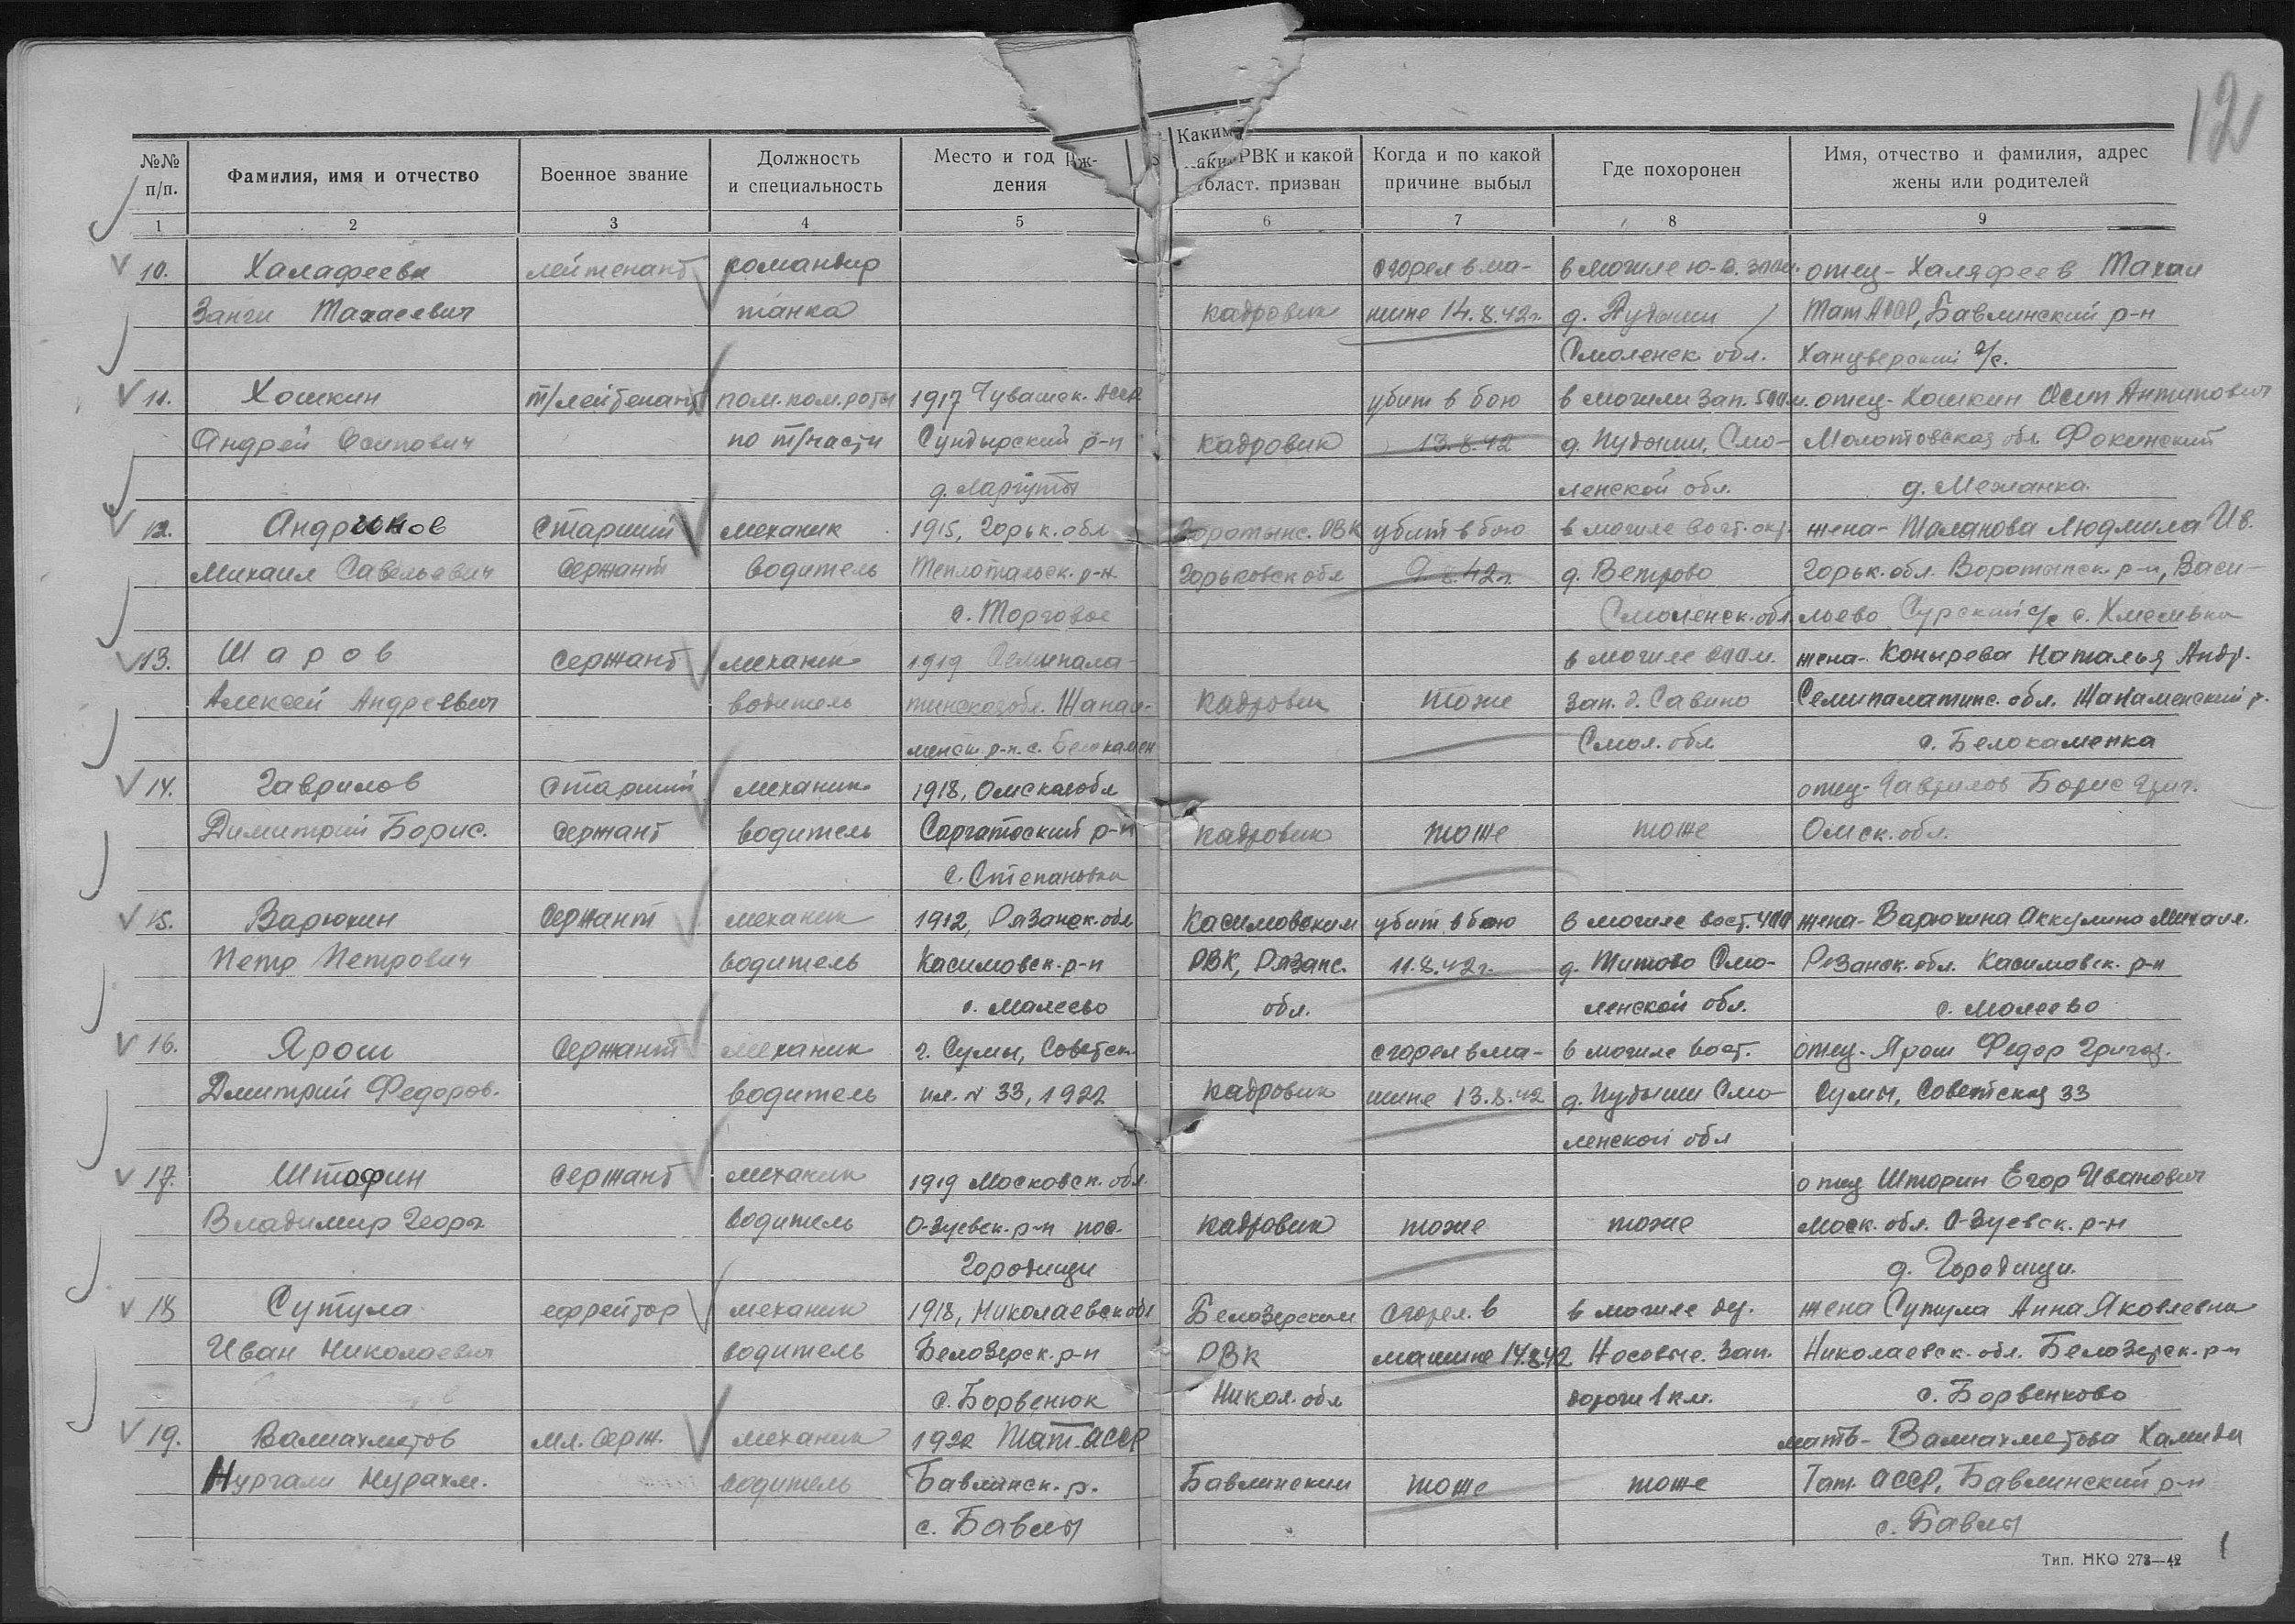 12
№№ п/п.
Фамилия, имя и отчество
Военное звание
Должность и специальность
Место и год рождения
Каким РВК и какой област. призван
Когда и по какой причине выбыл
Где похоронен
Имя, отчество и фамилия, адрес жены или родителей
1 2 3 4 5 6 7 8 9
10. Халафеев лейтенант командир сгорел в ма- в могиле ю-в. отец - Халяфеев Махал
Занги танка кадровик шине 14.8.42г. д. Пудыши Тат АССР, Бавлинский р-н
Смоленск обл. с/с.
11. Хошкин т/лейтенант пом. ком. роты 1917 Чувашск. АССР убит в бою в могили зап. 500м. отец - Хошкин Осип Антипович
Андрей Осипович по т/части Сундырский р-н кадровик 13.8.42 д. Пудыши, Смо- Молотовская обл. Фокинский
д. ленской обл. д. Межанка
12. Андронов Старший механик 1915, Горьк. обл Воротынс. РВК убит в бою в могиле вост. окр. жена - Маланова Людмила Ив.
Михаил Савельевич сержант водитель р-н Горьковск обл 9.8.42г. д. Ветрово Горьк. обл. Воротынск. р-н, Васи-
с. Торговое Смоленск. обл. льево Сурский с/с с. Хмелевка
13. Шаров Сержант механик 1919 Семипала- в могиле жена - Конырева Наталья Андр.
Алексей Андреевич водитель тинская обл. Жанаи- кадровик тоже зап. д. Савино Семипалатинс. обл. Жанаменский р.
менск. р-н. с. Белокамен Смол. обл с. Белокаменка
14. Гаврилов Старший механик 1918, Омская обл отец - Гаврилов Борис Григ.
Димитрий Борис. сержант водитель Саргатский р-н кадровик тоже тоже Омск. обл.
с. Степановка
15. Варюхин Сержант механик 1912, Рязанск. обл Касимовским убит в бою в могиле вост. 400 жена - Варюхина Аккулина Михаил.
Петр Петрович водитель Касимовск. р-н РВК, Рязанс. 11.8.42г. д. Титово Смо- Рязанск. обл. Касимовск. р-н
с. Малеево обл. ленской обл. с. Малеево
16. Ярош Сержант механик г. Сумы, Советск. сгорел в ма- в могиле вост. отец - Ярош Федор Григор.
Дмитрий Федоров. водитель ул. № 33, 1922 кадровик шине 13.8.42 д. Пудыши Смо- Сумы, Советская 33
ленской обл
17. Штофин Сержант механик 1919 Московск. обл. отец Шторин Егор Иванович
Владимир Георг. водитель О-Зуевск. р-н пос. кадровик тоже тоже Моск. обл. О-Зуевск. р-н
Городищи д. Городищи.
18 Сутула ефрейтор механик 1918, Николаевск обл Белозерским сгорел в в могиле де. жена Сутула Анна Яковлевна
Иван Николаевич водитель Белозерск. р-н РВК машине 14.8.42 Носовые. зап. Николаевск. обл. Белозерск. р-н
с. Борвенюк Никол. обл дороги 1 км. с. Борвенково
19. Валиахметов мл. серж. механик 1922 Тат АССР мать - Валиахметова Хамида
Нургали Нурахм. водитель Бавлинск. р. Бавлинским тоже тоже Тат. АССР, Бавлинский р-н
с. Бавлы с. Бавлы
Тип. НКО 273—42